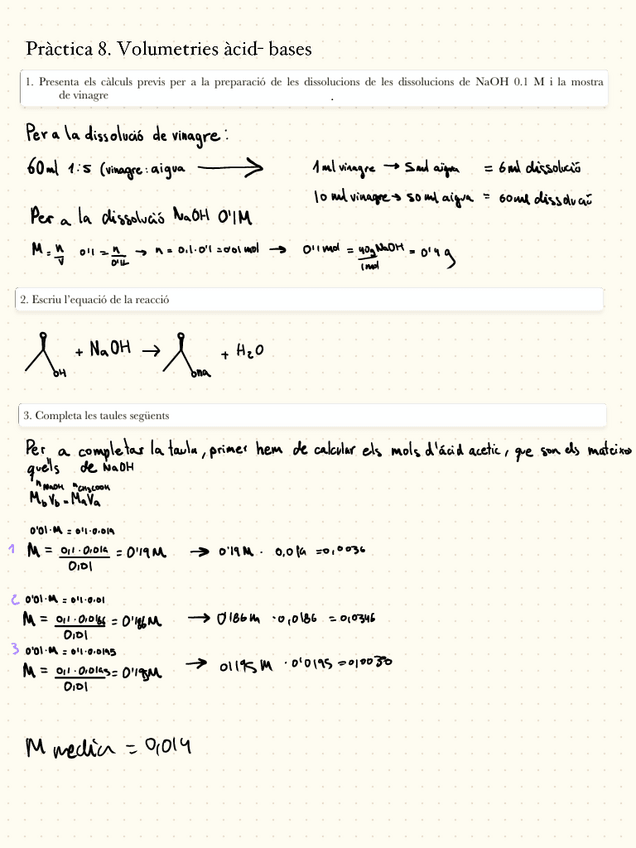 Pràctica 8. Volumetries àcid- bases
1. Presenta els càlculs previs per a la preparació de les dissolucions de les dissolucions de NaOH 0.1 M i la mostra
de vinagre
Per a la dissolució de vinagre:
60ml 1:5 (vinagre:aigua → 1 ml vinagre → 5ml aigua = 6ml dissolució
10 ml vinagre → 50 ml aigua = 60ml dissolució
Per a la dissolució NaOH 0'1M
M = n/V 0'1 = n/0'1L → n = 0.1·0'1 = 0'01 mol → 0'01 mol = 40g NaOH/1mol = 0'4 g
2. Escriu l'equació de la reacció
OH + NaOH → ONa + H2O
3. Completa les taules següents
Per a completar la taula, primer hem de calcular els mols d'ácid acetic, que son els mateixos
quells de NaOH
nNaOH nCH3COOH
MbVb = MaVa
0'01·M = 0'1·0.019
1 M = 0,1·0,019/0,01 = 0'19M → 0'19M · 0,019 = 0,0036
2 0'01·M = 0'1·0.01
M = 0,1·0,0186/0,01 = 0'186M → 0'186M · 0,0186 = 0,0346
3 0'01·M = 0'1·0.0195
M = 0,1·0,0195/0,01 = 0'195M → 0,195M · 0'0195 = 0,0030
M media = 0,014